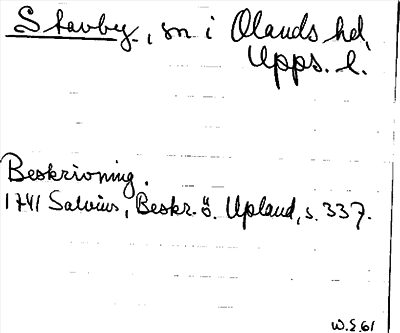 Stavby, sn i Olands hd,
Upps. l.
Beskrivning.
1741 Salvius, Beskr. ö. Upland, s. 337.
W.E. 61